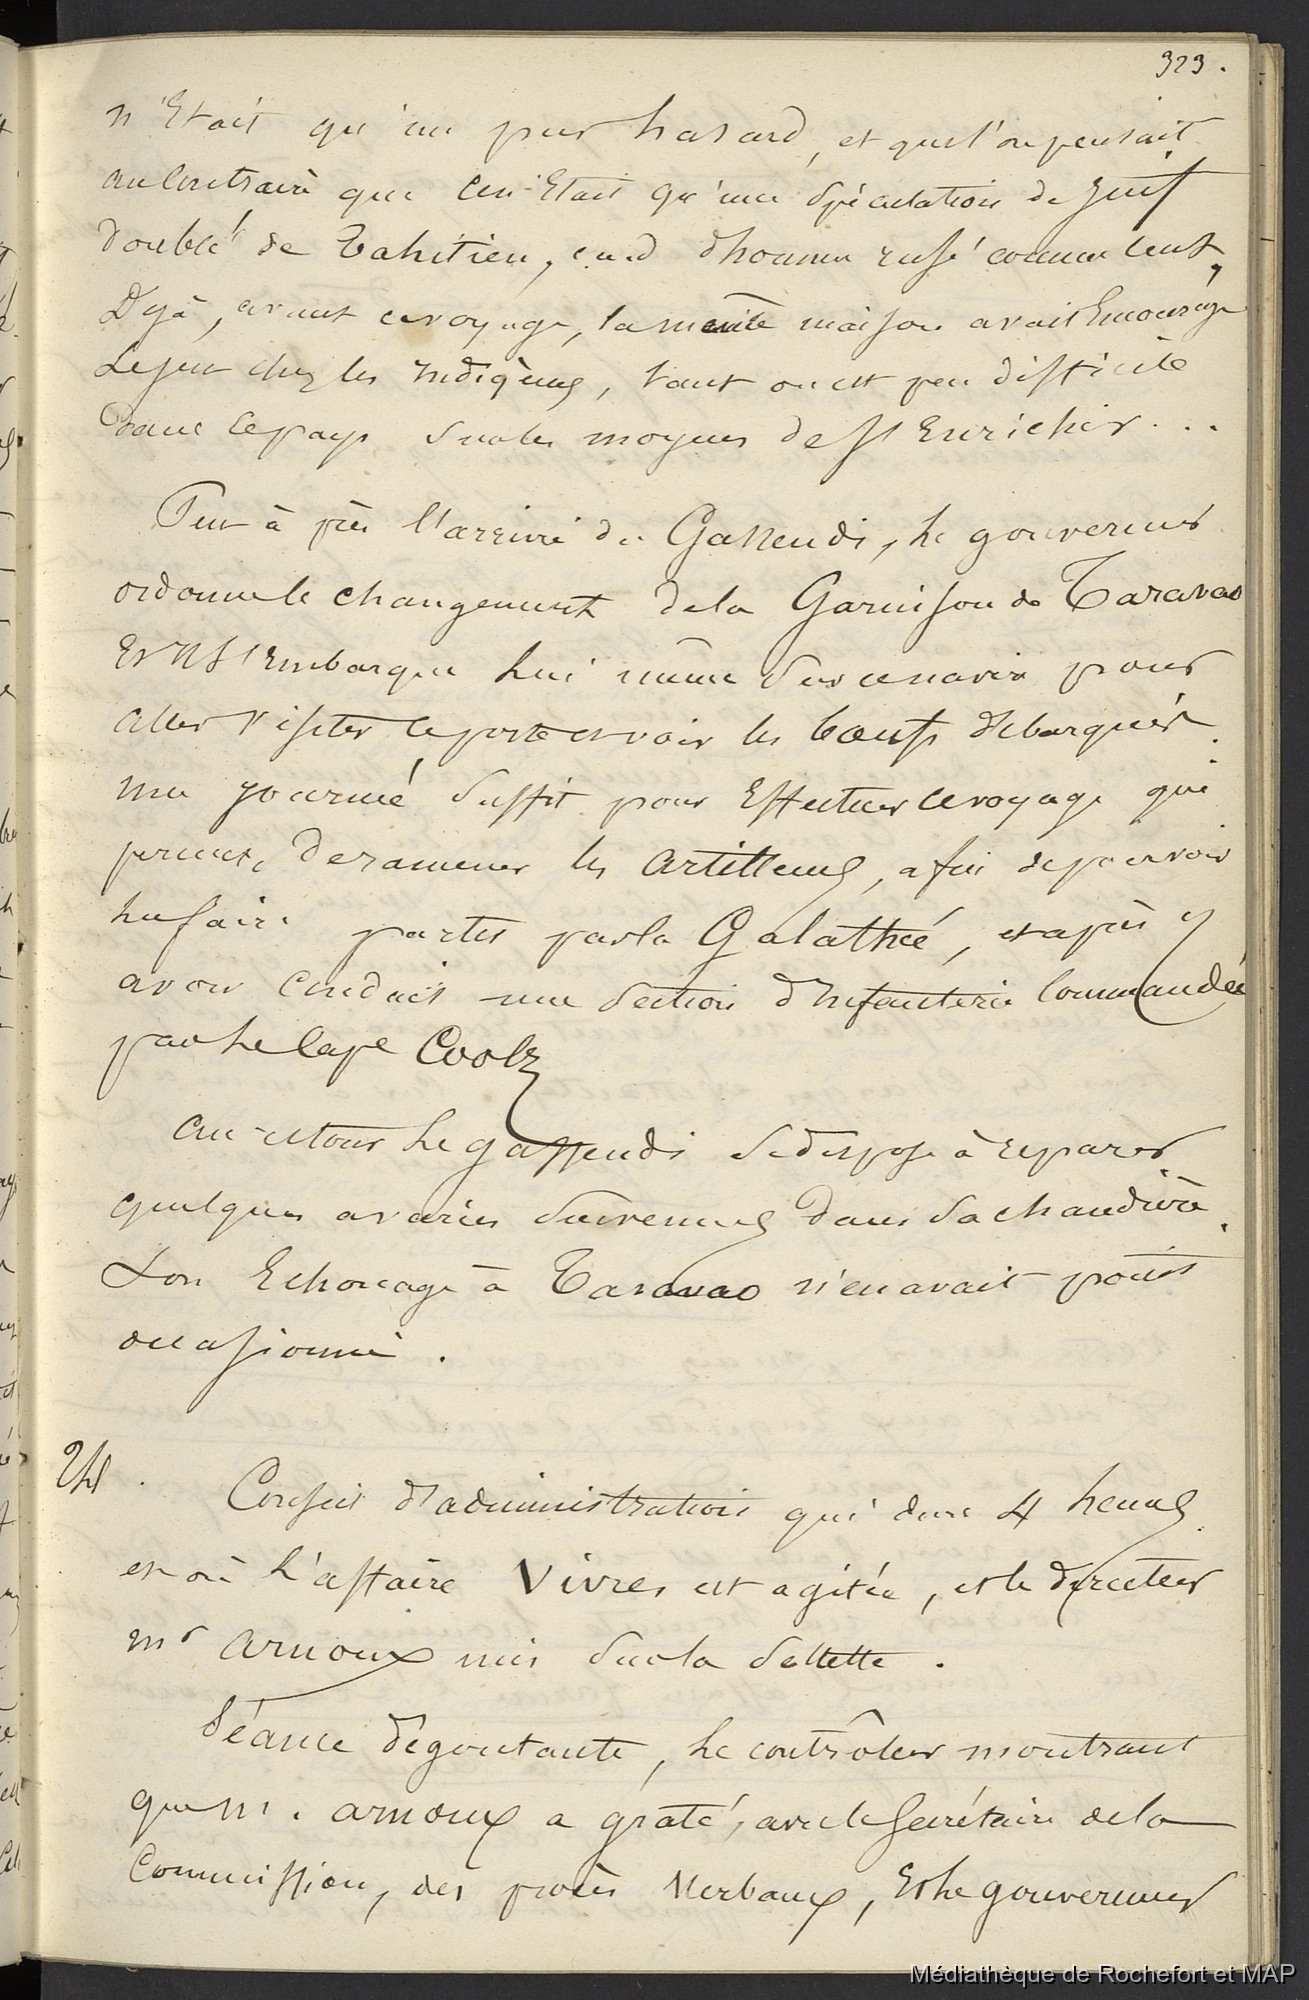 323.
n'Etait qu'un pur hasard, et que l'on pensait
au Contraire que Cen'Etait qu'une Spéculation de Juif
doublé de Tahitien, c.a.d d'homme rusé comme Cent,
Déjà, avant ce voyage, la même maison avait Encouragé
Le jeu chez les Indigènes, tant on est peu difficile
Dans ce pays Sur les moyens de s'Enrichir...
Peu à près l'arrivée du Gassendi, Le gouverneur
ordonne le changement de la Garnison de Taravao
Et s'Embarque Lui même Sur ce navire pour
aller visiter ce poste et voir les bœufs débarqués.
une journée Suffit pour Effectuer ce voyage qui
permet, de ramener les artilleurs, afin de pouvoir
Les faire partir par la Galathée, et après y
avoir Conduit une Section d'Infanterie Commandée
par Le Cape Coolz
au retour Le gassendi se dispose à réparer
quelques avaries Survenues Dans Sa chaudière.
Son Echouage à Taravao n'en avait point
occasionné.
24. Conseil d'administration qui dure 4 heures
et où L'affaire Vivres est agitée, et le directeur
mr Arnoux mis Sur la Sellette.
Séance dégoutante, Le contrôleur montrant
que m. arnoux a graté, avec le Secrétaire de la
Commission, des procès Verbaux, Et Le gouverneur
Médiathèque de Rochefort et MAP